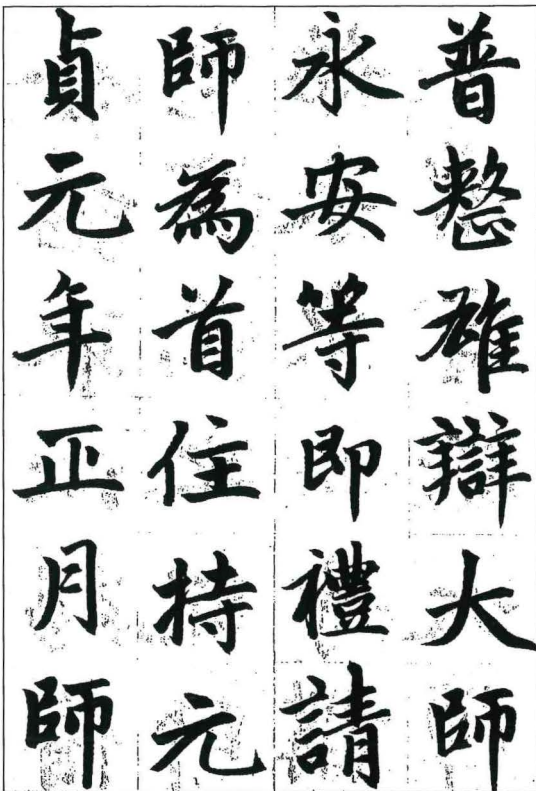 普整雄辯大師
永安等即禮請
師為首住持元
貞元年正月師